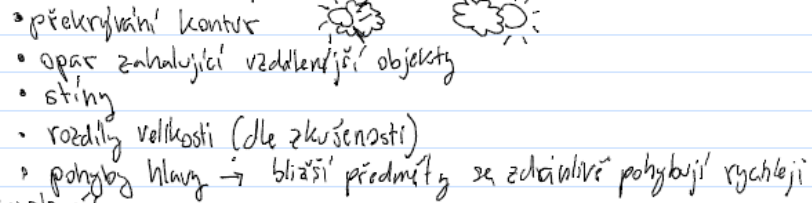 • překrývání kontur
• opar zahalující vzdálenější objekty
• stíny
• rozdíly velikosti (dle zkušeností)
• pohyby hlavy → bližší předměty se zdánlivě pohybují rychleji